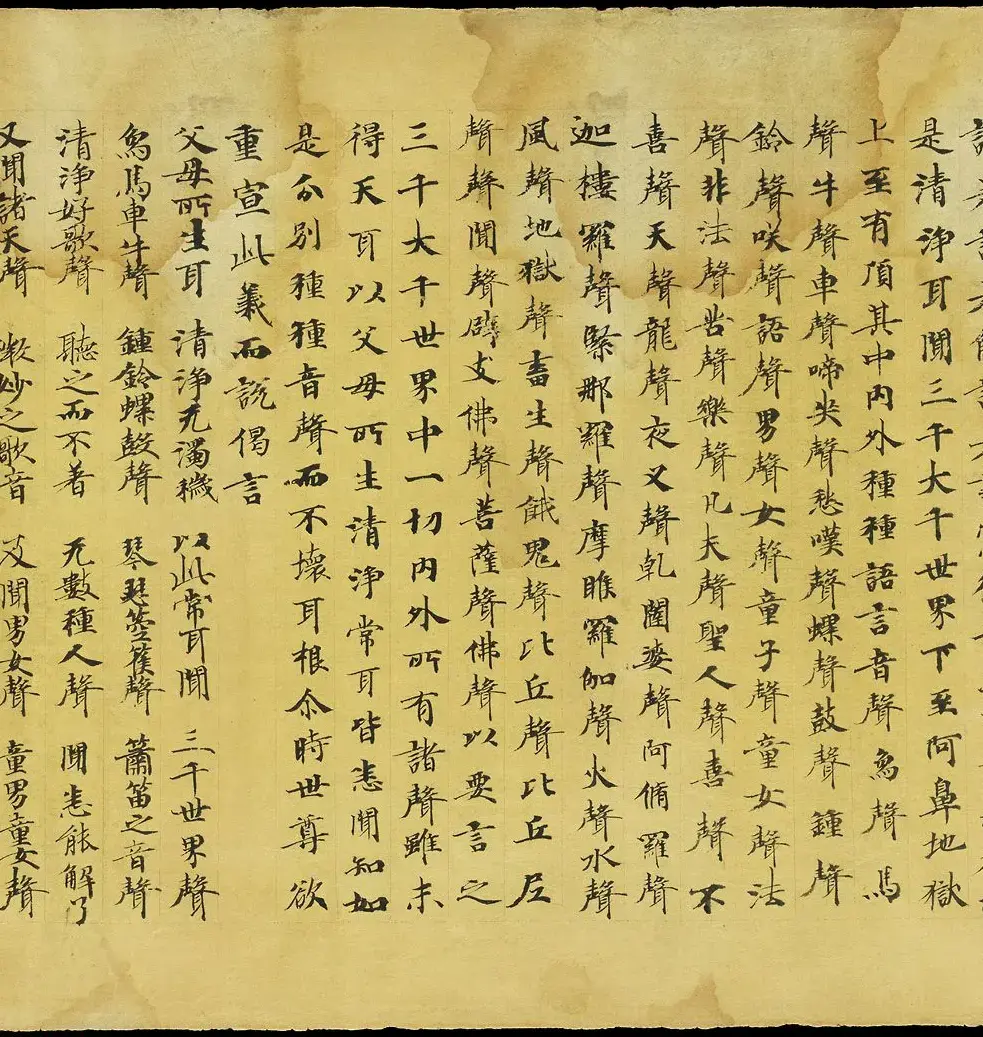 是清淨耳聞三千大千世界下至阿鼻地獄
上至有頂其中內外種種語言音聲為聲馬
聲牛聲車聲啼哭聲愁嘆聲螺聲鼓聲鍾聲
鈴聲咲聲語聲男聲女聲童子聲童女聲法
聲非法聲苦聲樂聲凡夫聲聖人聲喜聲不
喜聲天聲龍聲夜叉聲乹闥婆聲阿脩羅聲
迦樓羅聲緊那羅聲摩睺羅伽聲火聲水聲
風聲地獄聲畜生聲餓鬼聲比丘聲比丘尼
聲聲聞聲辟支佛聲菩薩聲佛聲以要言之
三千大千世界中一切內外所有諸聲雖未
得天耳以父母所生清淨常耳皆悉聞知如
是分別種種音聲而不壞耳根尒時世尊欲
重宣此義而說偈言
父母所生耳 清淨无濁穢 以此常耳聞 三千世界聲
為馬車牛聲 鍾鈴螺鼓聲 琴瑟箜篌聲 簫笛之音聲
清淨好歌聲 聽之而不著 无數種人聲 聞悉能解了
又聞諸天聲 微妙之歌音 及聞男女聲 童男童女聲